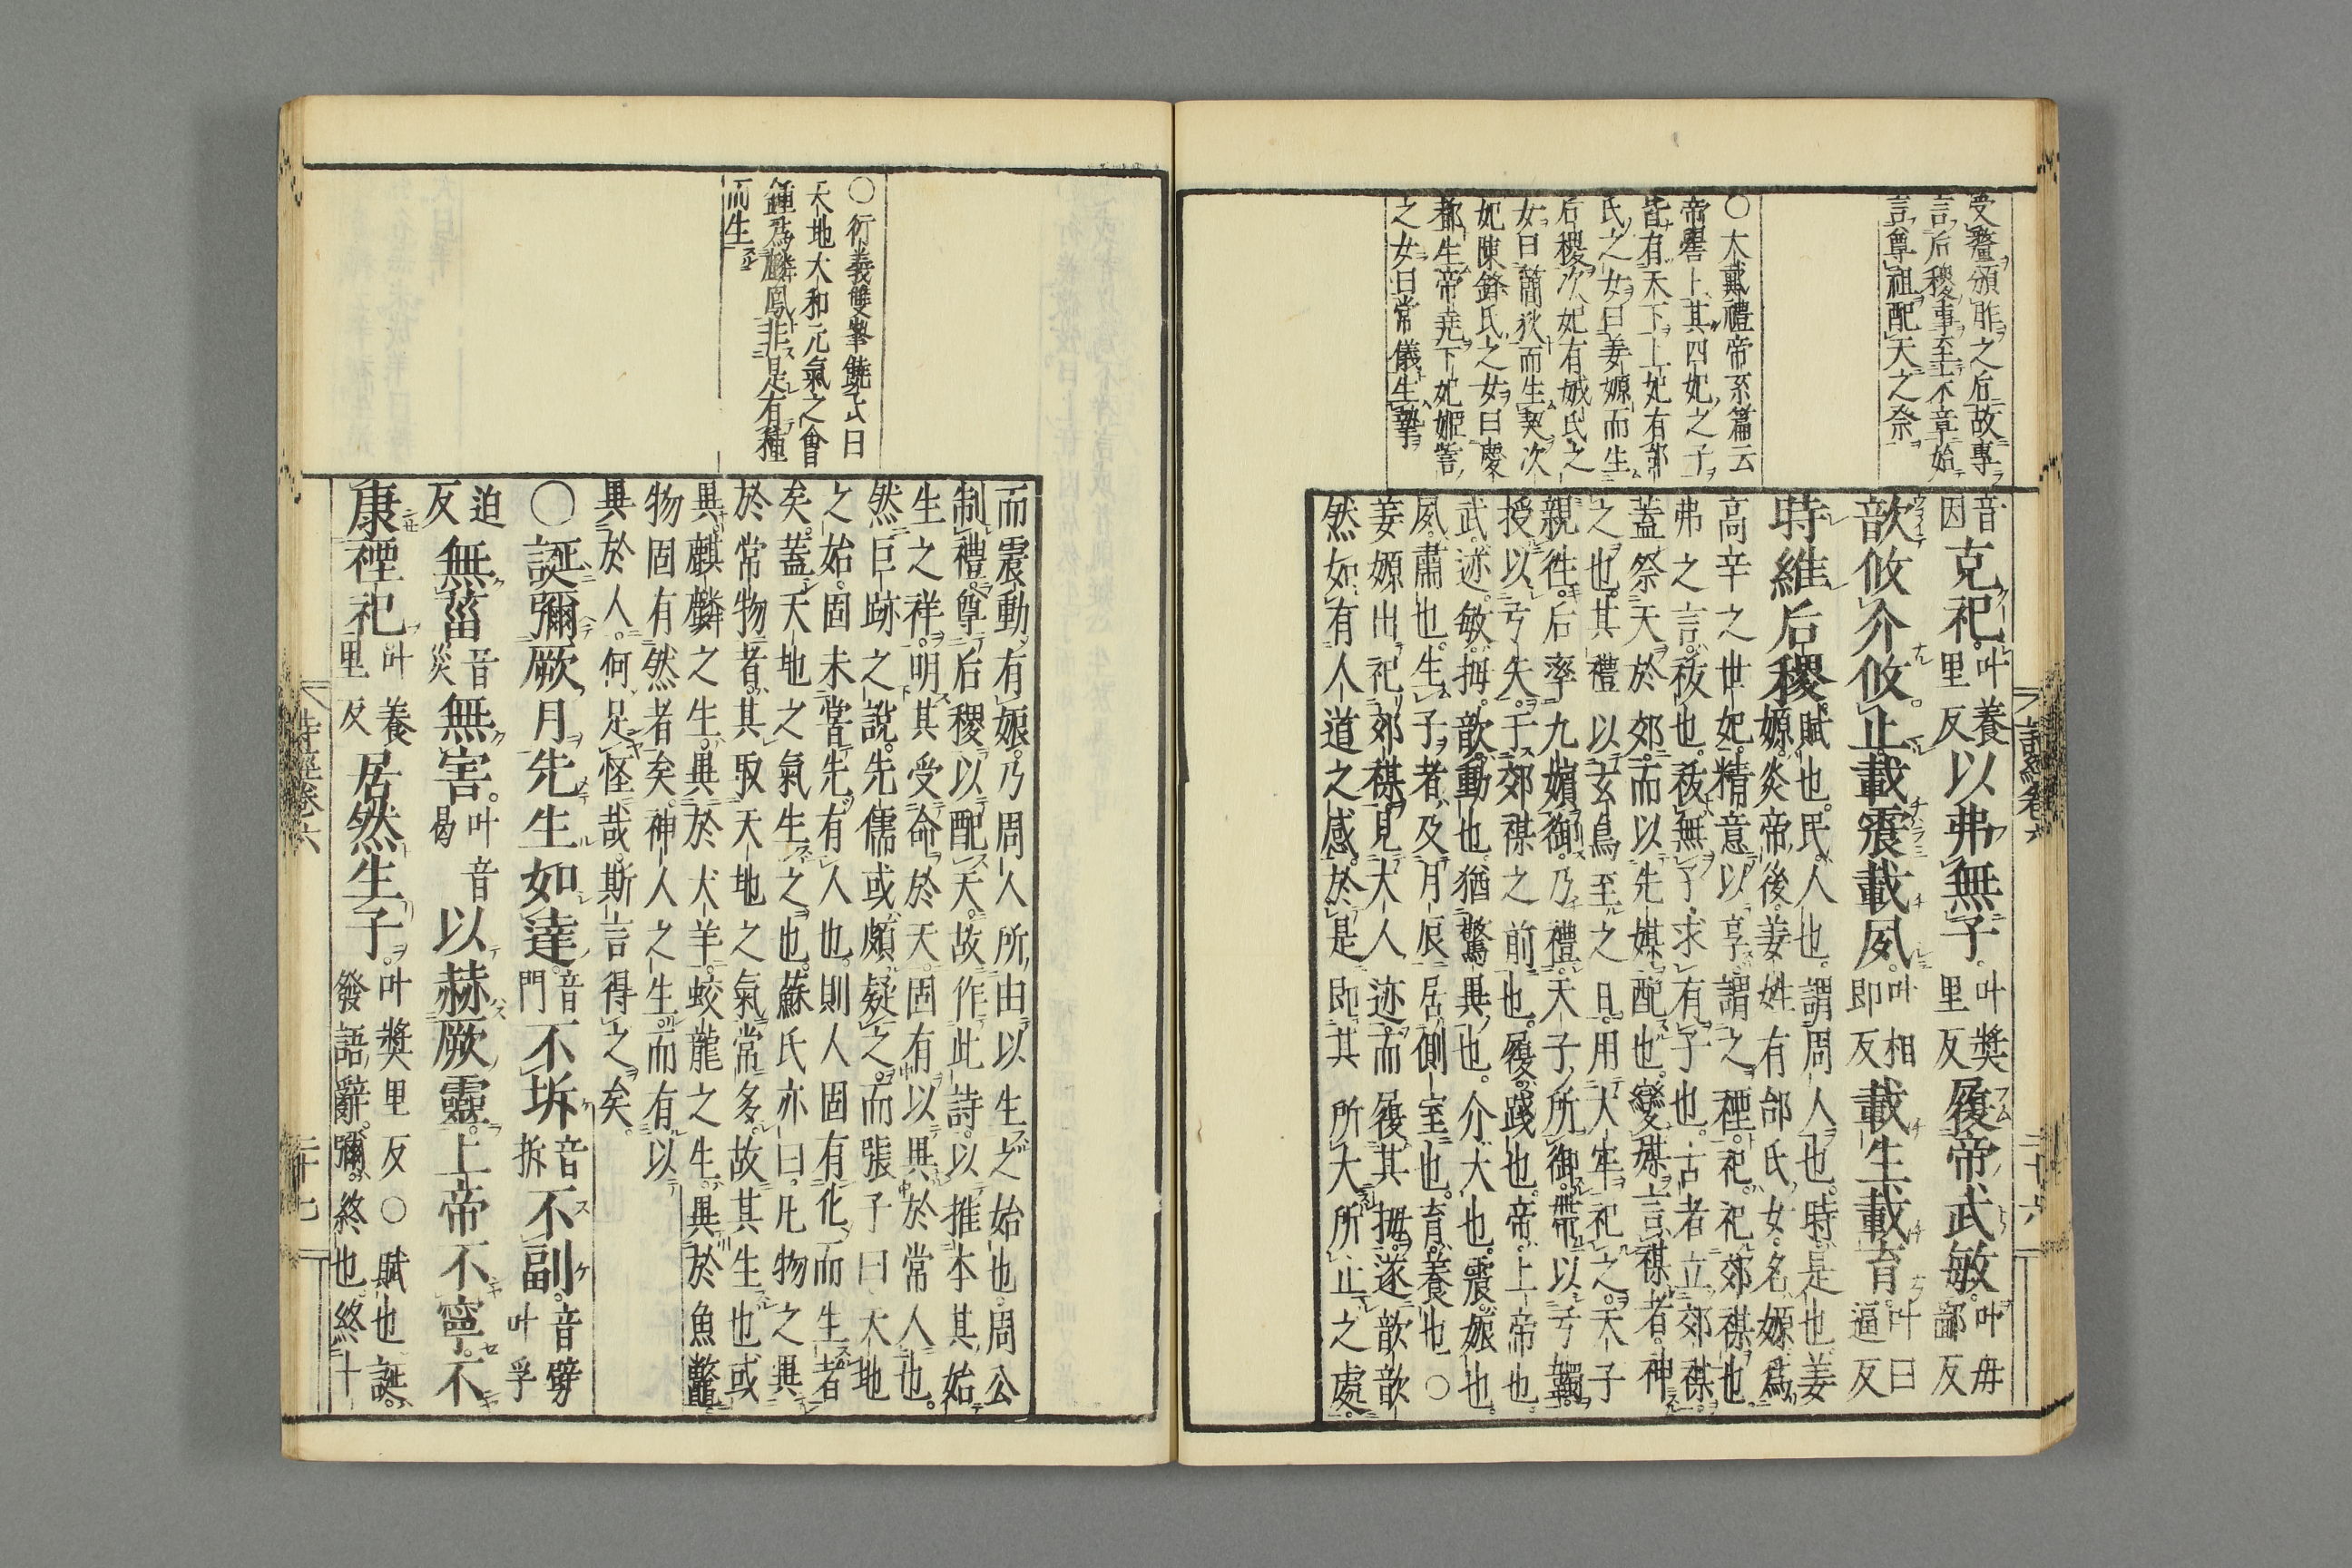 受釐頒胙之后故專
言后稷事至卒章始
言尊祖配天之祭
○大戴禮帝系篇云
帝嚳卜其四妃之子
皆有天下上妃有邰
氏之女曰姜嫄而生
后稷次妃有娀氏之
女曰簡狄而生契次
妃陳鋒氏之女曰慶
都生帝堯下妃娵訾
之女曰常儀生摯
音因克祀叶養里反以弗無子叶奬里反履帝武敏叶母鄙反
歆攸介攸止載震載夙叶相即反載生載育叶曰逼反
時維后稷賦也民人也謂周人也時是也姜嫄炎帝後姜姓有邰氏女名嫄爲
高辛之世妃精意以享謂之禋祀祀郊禖也
弗之言祓也祓無子求有子也古者立郊禖
蓋祭天於郊而以先媒配也變媒言禖者神
之也其禮以玄鳥至之日用大牢祀之天子
親徃后率九嬪御乃禮天子所御帶以弓韣
授以弓矢于郊禖之前也履踐也帝上帝也
武迹敏拇歆動也猶驚異也介大也震娠也
夙肅也生子者及月辰居側室也育養也○
姜嫄出祀郊禖見大人迹而履其拇遂歆歆
然如有人道之感於是即其所大所止之處
詩經卷六
二十六
○衍義雙峯饒氏曰
天地大和元氣之會
鍾爲麟鳳非是有種
而生
而震動有娠乃周人所由以生之始也周公
制禮尊后稷以配天故作此詩以推本其始
生之祥明其受命於天固有以異於常人也
然巨跡之說先儒或頗疑之而張子曰天地
之始固未嘗先有人也則人固有化而生者
矣蓋天地之氣生之也蘇氏亦曰凡物之異
於常物者其取天地之氣常多故其生也或
異麒麟之生異於犬羊蛟龍之生異於魚鼈
物固有然者矣神人之生而有以
異於人何足怪哉斯言得之矣
○誕彌厥月先生如達音門不坼音拆不副音劈叶孚
迫反無菑音災無害叶音曷以赫厥靈上帝不寧不
康禋祀叶養里反居然生子叶奬里反○賦也誕發語辭彌終也終十
詩經卷六
二十七